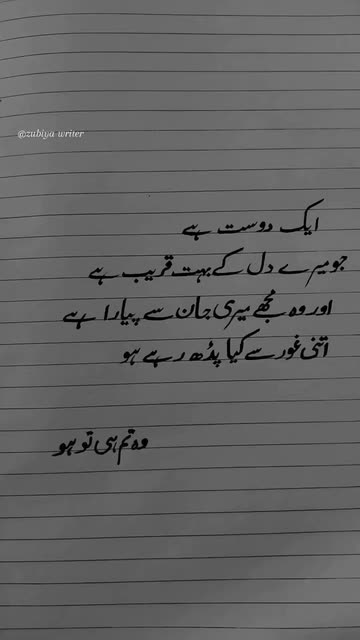 @zubiya writer
ایک دوست ہے
جو میرے دل کے بہت قریب ہے
اور وہ مجھے میری جان سے پیارا ہے
اتنی غور سے کیا پڑھ رہے ہو
وہ تم ہی تو ہو